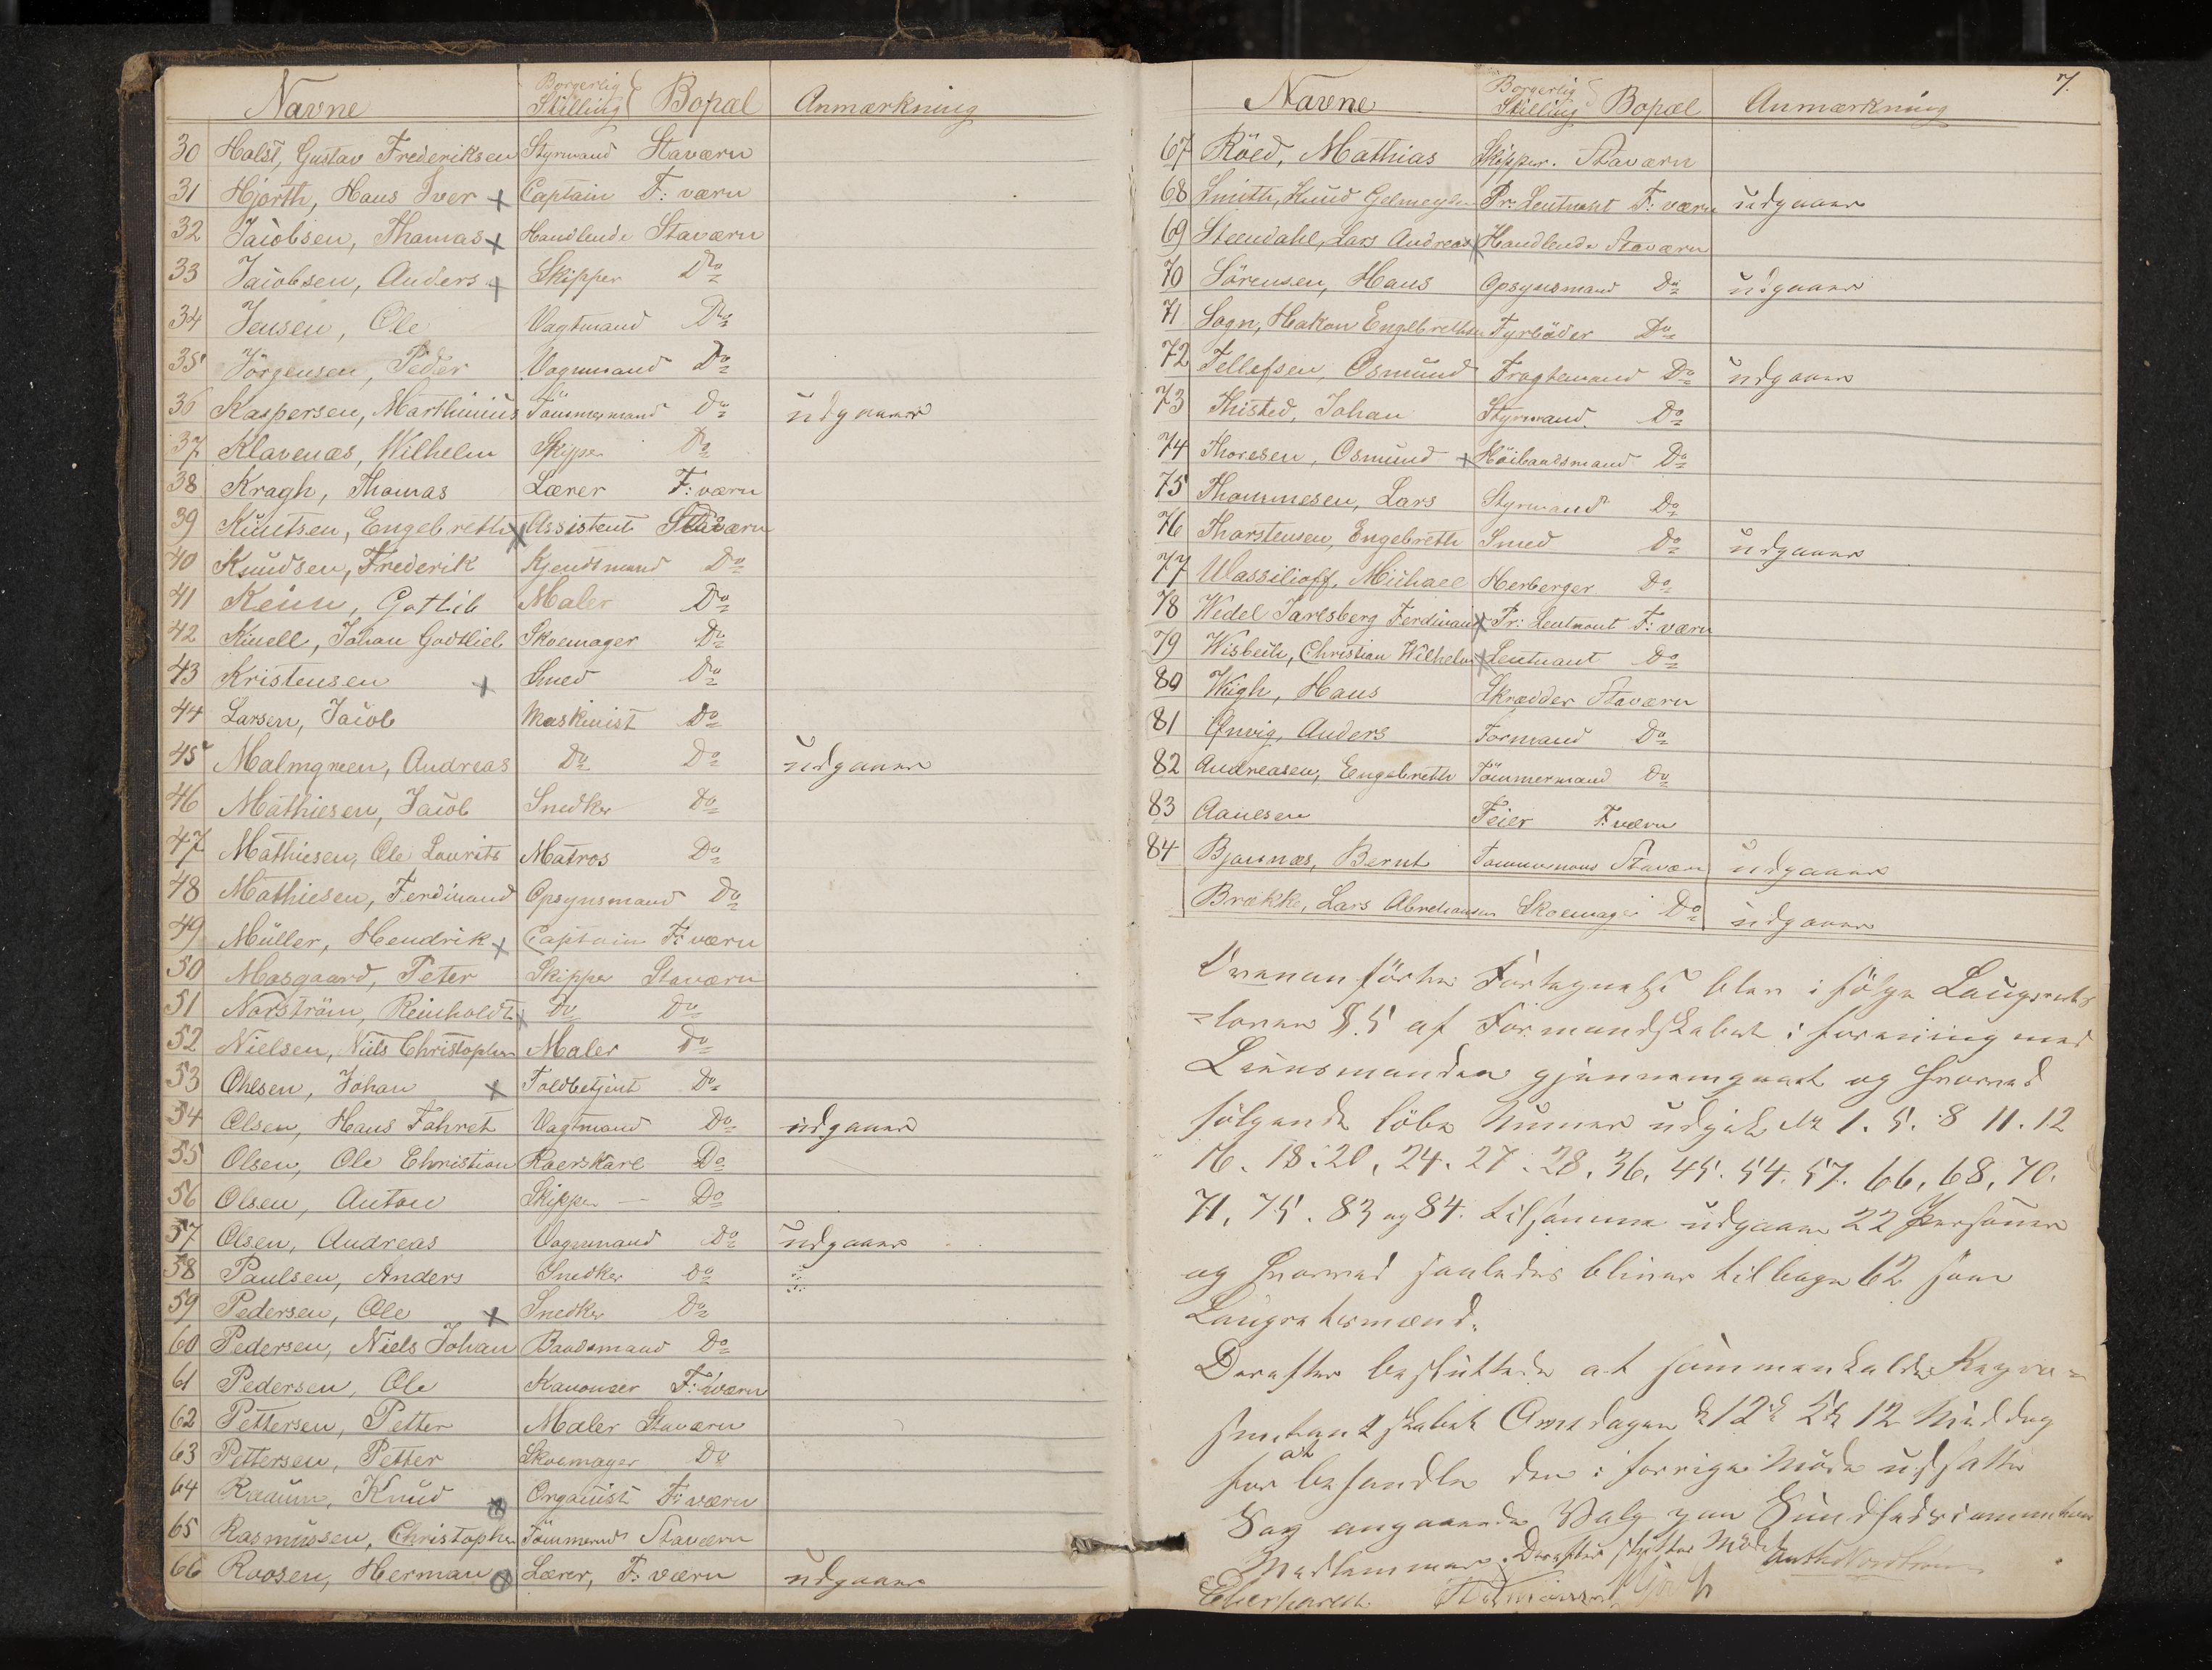 Navne Borgerlig Stilling Bopæl Anmærkning
30 Holst, Gustav Frederiksen Styrmand Staværn
31 Hjorth, Hans Iver x Captain F: værn
32 Jacobsen, Thomas x Handlende Staværn
33 Jacobsen, Anders x Skipper Do
34 Jensen, Ole Vagtmand Do
35 Jörgensen, Peder Vognmand Do
36 Kaspersen, Marthinius Tömmermand Do udgaaer
37 Klavenæs, Wilhelm Skipper Do
38 Kragh, Thomas Lærer F: værn
39 Knutsen, Engebreth x Assistent Staværn
40 Knudsen, Frederik Kjendsmand Do
41 Gotlib Maler Do
42 Johan Godtlieb Skoemager Do
43 Kristensen x Smed Do
44 Larsen, Jacob Maskinist Do
45 Malmgreen, Andreas Do Do udgaaer
46 Mathiesen, Jacob Snedker Do
47 Mathiesen, Ole Laurits Matros Do
48 Mathiesen, Ferdinand Opsynsmand Do
49 Müller, Hendrik x Captain F: værn
50 Mosgaard, Peter Skipper Staværn
51 Norström, Reinholdt x Do Do
52 Nielsen, Niels Christopher Maler Do
53 Ohlsen, Johan x Toldbetjent Do
54 Olsen, Hans Fahret Vagtmand Do udgaaer
55 Olsen, Ole Christian Roerskarl Do
56 Olsen, Anton Skipper — Do
57 Olsen, Andreas Vognmand Do udgaaer
58 Paulsen, Anders Snedker Do
59 Pedersen, Ole x Snedker Do
60 Pedersen, Niels Johan Baadsmand Do
61 Pedersen, Ole Kanoneer F: værn
62 Pettersen, Petter Maler Staværn
63 Pettersen, Petter Skoemager Do
64 Raaum, Knud x Organist F: værn
65 Rasmussen, Christopher Tömmermd Staværn
66 Roosen, Herman x Lærer, F: værn udgaaer
7.
Navne Borgerlig Stilling Bopæl Anmærkning
67 Röed, Mathias Skipper. Staværn
68 Smith, Knud Pr. Leutnant F: værn udgaaer
69 Steendahl, Lars Andreas x Handlende Staværn
70 Sörensen, Hans Opsynsmand Do udgaaer
71 Sogn, Hakon Engelbrethsen Fyrböder Do
72 Tellefsen, Osmund Fragtemand Do udgaaer
73 Thisted, Johan Styrmand. Do
74 Thoresen, Osmund x Höibaadsmand Do
75 Thommesen, Lars Styrmand Do
76 Thorstensen, Engebreth Smed Do udgaaer
77 Wassilioff, Michael Herberger Do
78 Wedel Jarlsberg Ferdinand x Pr: Leutnant F: værn
79 Wisbech, Christian Wilhelm x Leutnant Do
80 Hans Skrædder Staværn
81 Anders Formand Do
82 Andreasen, Engebreth Tömmermand Do
83 Aanesen Feier F: værn
84 Bjonnæs, Bernt Tommermand Staværn udgaaer
Brække, Lars Abrahamsen Skoemager Do udgaaer
Ovenanförte Fortegnelse blev i fölge Laugretts
=loven §.5 af Formandskabet i forening med
Lensmanden gjennemgaaet og hvorved
fölgende löbe Numer udgik No 1. 5. 8 11. 12
16. 18. 20. 24. 27. 28. 36. 45. 54. 57. 66. 68. 70.
71. 75. 83 og 84. tilsamme udgaaer 22 Personer
og hvorved saaledes bliver tilbage 62 som
Laugrettesmænd.
Derefter besluttede at sammenkalde Repræ=
sentantskabet Onsdagen d 12te Kl 12 Middag
for at behandle den i forrige Möde udsatte
Sag angaaende Valg paa Sundhedscommitteens
Medlemmer. Derefter sluttet Mödet